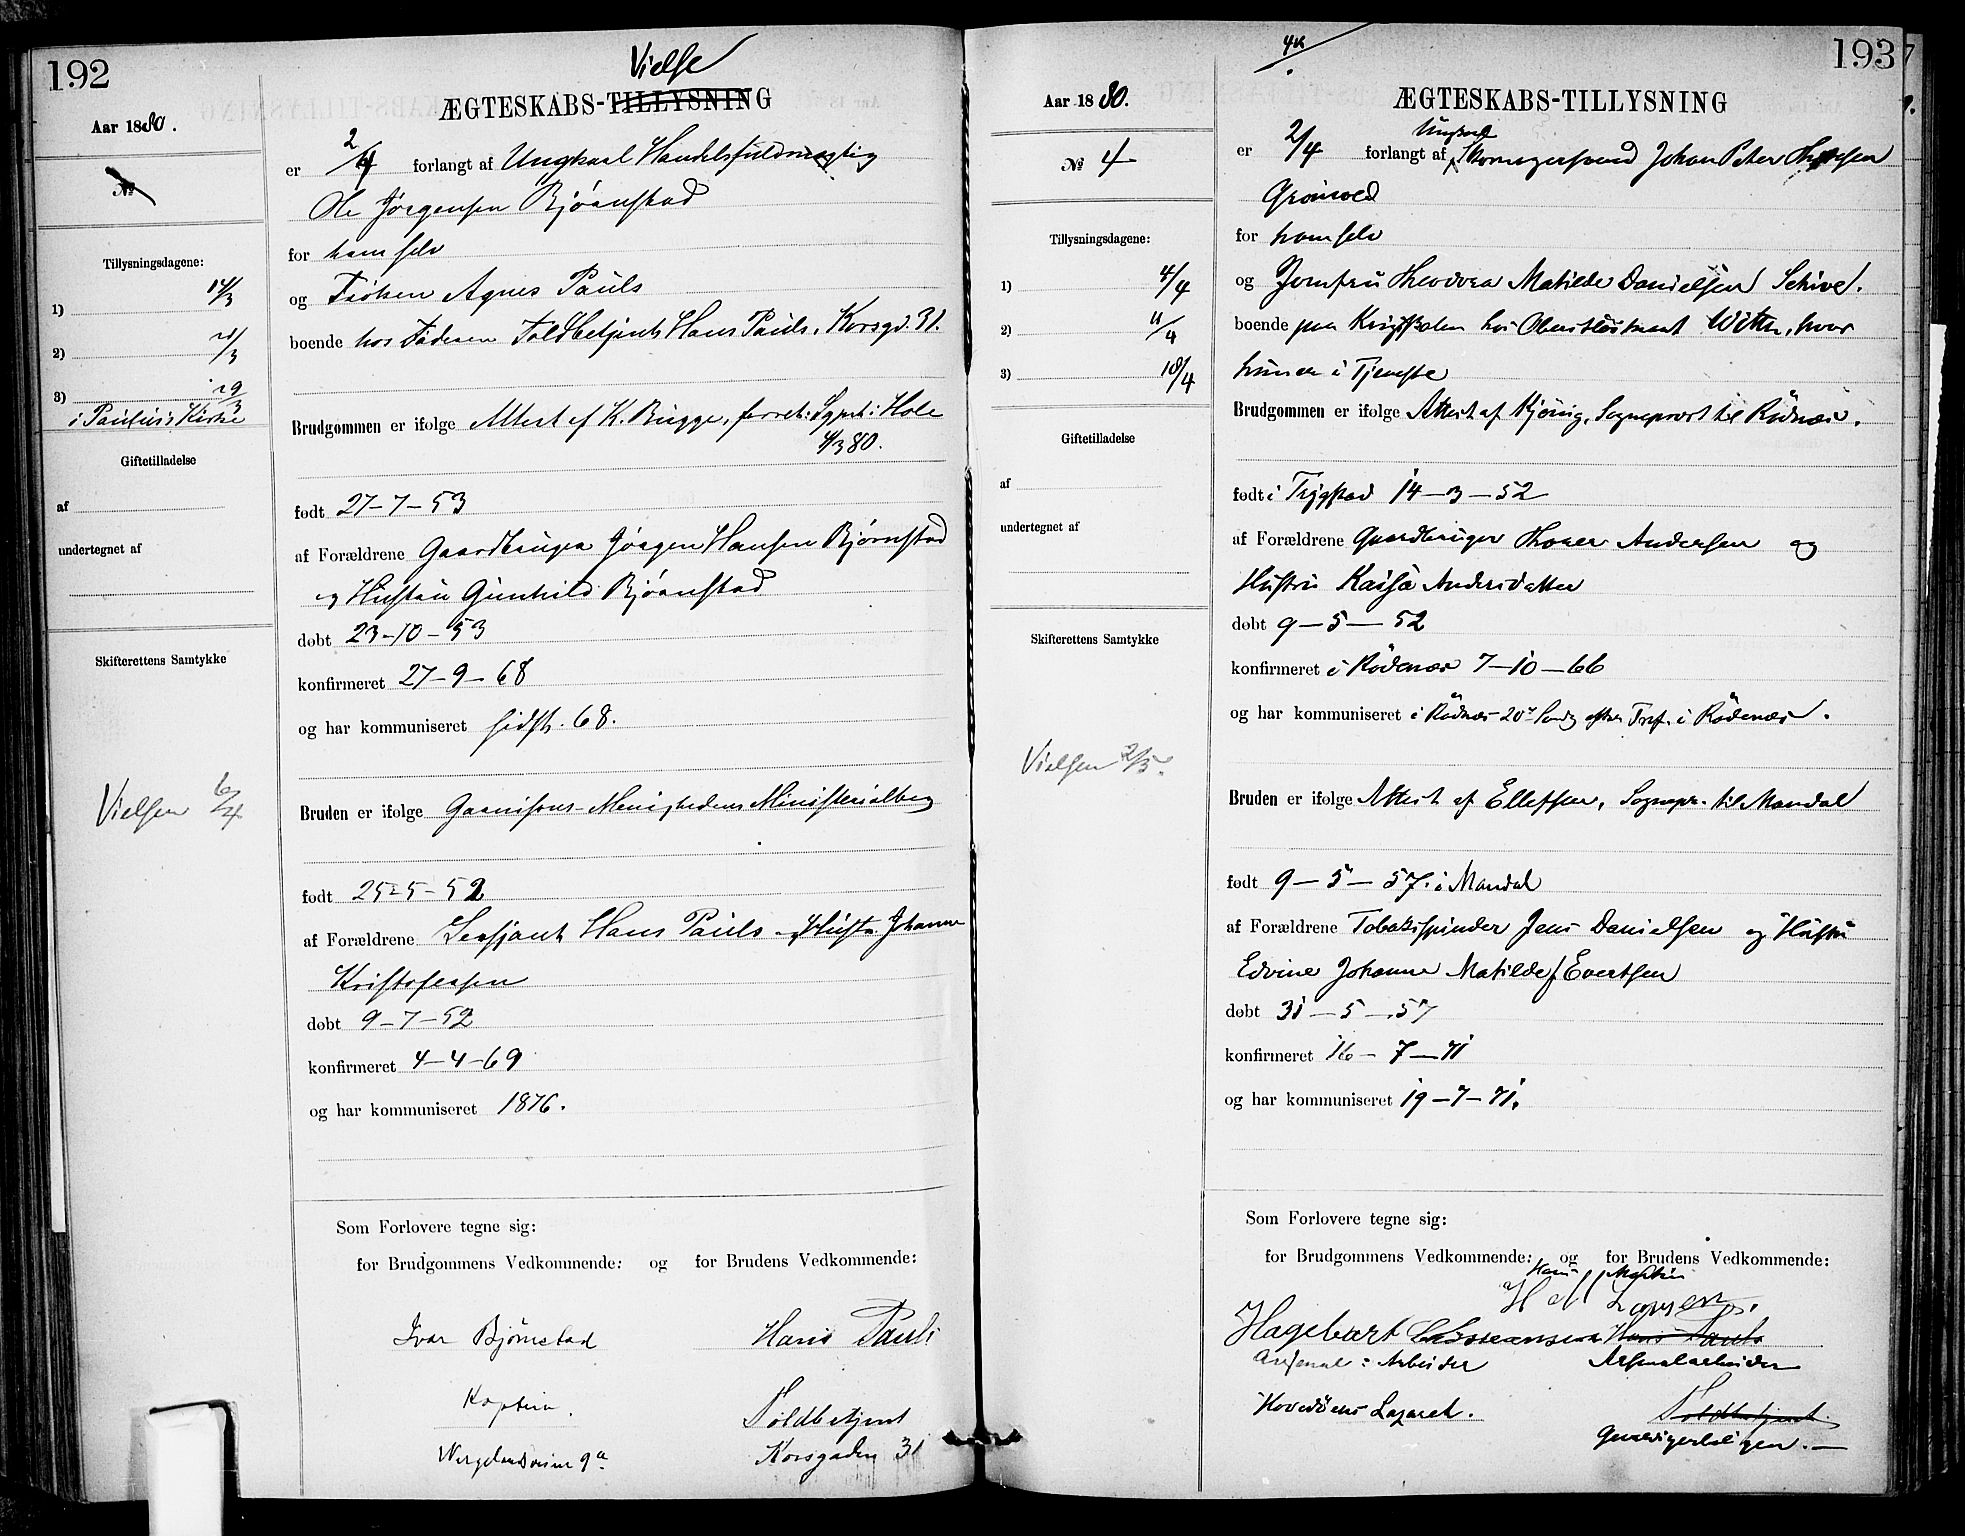 192
Aar 1880.
№
Tillysningsdagene:
1) 14/3
2) 21/3
3) 29/3
i Paulus's Kirke
Giftetilladelse
af
undertegnet af
Skifterettens Samtykke
Vielsen 6/4
Vielse
ÆGTESKABS-TILLYSNING
er 2/4 forlangt af Ungkarl Handelsfuldmægtig
Ole Jörgensen Bjørnstad
for ham selv
og Fröken Agnes Pauls
boende hos Faderen Toldbetjent Hans Pauls, Korsgd. 31.
Brudgommen er ifølge Attest af K. Brügge, forret. Sgpr. i Hole
4/3 80.
født 27-7-53
af Forældrene Gaardbruger Jörgen Hansen Bjørnstad
og Hustru Gunhild Bjørnstad
døbt 23-10-53
konfirmeret 27-9-68
og har kommuniseret sidst. 68.
Bruden er ifølge Garnisons-Menighedens Ministerialbog
født 25-5-52
af Forældrene Sersjant Hans Pauls og Hustr. Johanne
Kristofersen
døbt 9-7-52
konfirmeret 4-4-69
og har kommuniseret 1876.
Som Forlovere tegne sig:
for Brudgommens Vedkommende: og for Brudens Vedkommende:
Ivar Bjørnstad Hans Pauls
Kaptein. Toldbetjent
Wergelandsveien 9a Korsgaden 31
193
Aar 1880.
№ 4
Tillysningsdagene:
1) 4/4
2) 11/4
3) 18/4
Giftetilladelse
af
undertegnet af
Skifterettens Samtykke
Vielsen 2/5.
ÆGTESKABS-TILLYSNING
Ungkarl
er 2/4 forlangt af Skomagersvend Johan Peter
Grönvold
for ham selv
og Jomfru Theodora Matilde Danielsen Schive.
boende paa Krigsskolen hos Oberstløitnant With, hvor
hun er i Tjeneste
Brudgommen er ifølge Attest af Kjönig, Sogneprest til Rødenæs.
født i Trygstad 14-3-52
af Forældrene Gaardbruger Thorer Andersen og
Hustru Kaisa Andersdatter
døbt 9-5-52
konfirmeret i Rødenæs 7-10-66
og har kommuniseret i Rødnæs 20de Søndg efter Tref. i Rødenæs.
Bruden er ifølge Attest af Ellefsen, Sognepr. til Mandal
født 9-5-57. i Mandal
af Forældrene Tobaksspinder Jens Danielsen og Hustru
Edvine Johanne Matilde f. Evertsen
døbt 31-5-57
konfirmeret 16-7-71
og har kommuniseret 19-7-71.
Som Forlovere tegne sig:
for Brudgommens Vedkommende: og for Brudens Vedkommende:
Hans Martin
H M Larsen.
Hagebart Hans Pauls
Arsenal: Arbeider Arsenalarbeider
Hovedöens Lazaret. Toldbetjent